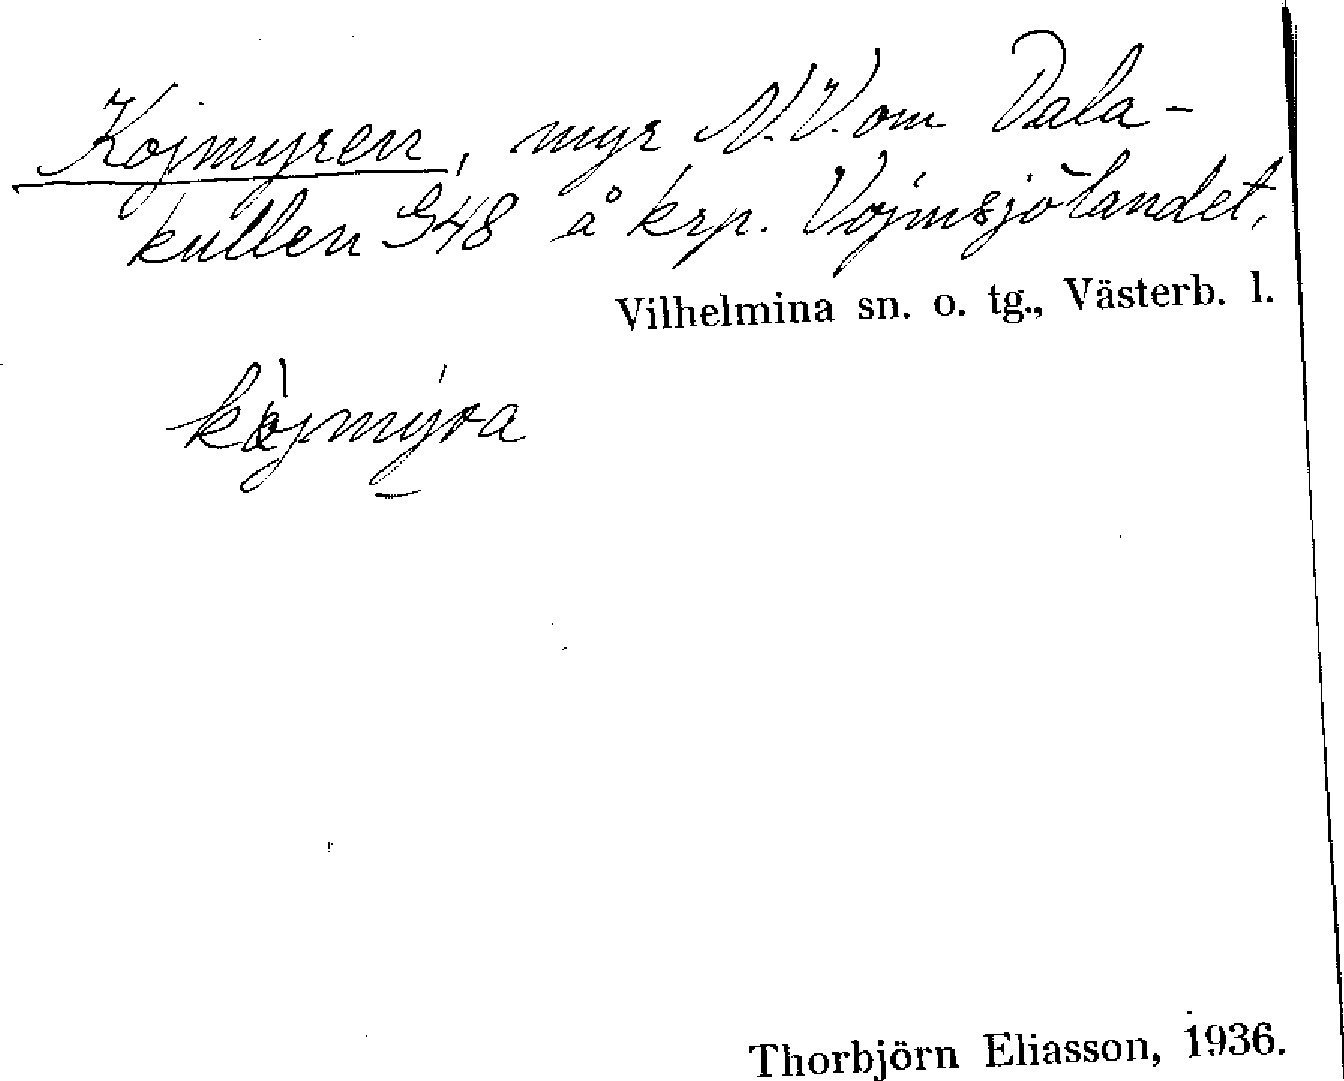 Kojmyren, myr N.V. om Dala-
kullen 548 å krp. Vojmsjölandet,
Vilhelmina sn. o. tg., Västerb. l.
kòjmýra
Thorbjörn Eliasson, 1936.